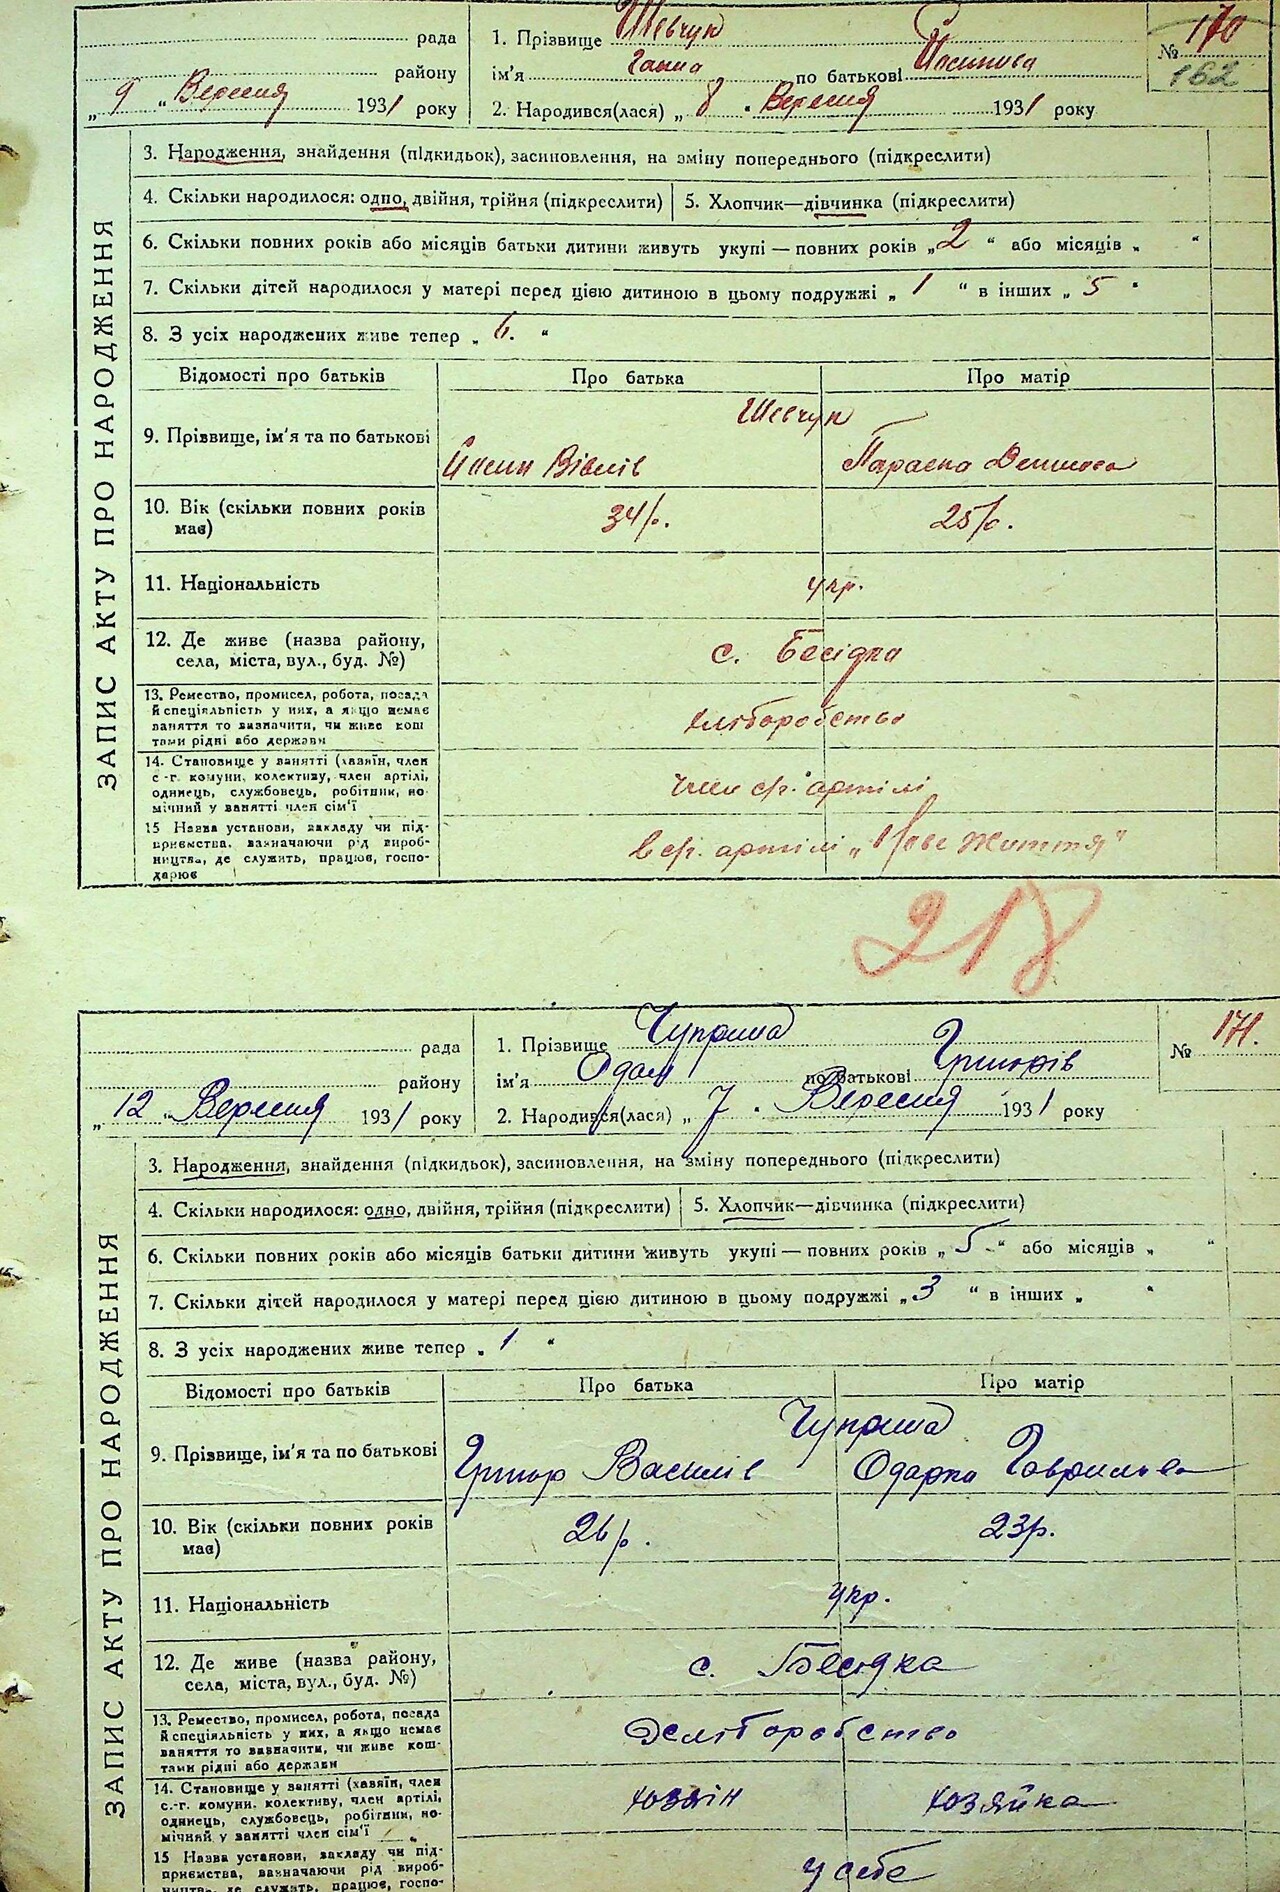 рада
району
„ 9 „ Вересня 1931 року
1. Прізвище Шевчук
ім'я Ганна по батькові Йосипова
2. Народився(лася) „ 8 . Вересня 1931 року
№ 170
162
ЗАПИС АКТУ ПРО НАРОДЖЕННЯ
3. Народження, знайдення (підкидьок), засиновлення, на зміну попереднього (підкреслити)
4. Скільки народилося: одно, двійня, трійня (підкреслити) 5. Хлопчик—дівчинка (підкреслити)
6. Скільки повних років або місяців батьки дитини живуть укупі — повних років „ 2 “ або місяців „ “
7. Скільки дітей народилося у матері перед цією дитиною в цьому подружжі „ 1 “ в інших „ 5 “
8. З усіх народжених живе тепер „ 6. “
Відомості про батьків Про батька Про матір
Шевчук
9. Прізвище, ім'я та по батькові
Параска
10. Вік (скільки повних років має) 34 р. 25 р.
11. Національність укр.
12. Де живе (назва району, села, міста, вул., буд. №) с. Бесідка
13. Ремество, промисел, робота, посада
й спеціяльність у них, а якщо немає
заняття то визначити, чи живе кош
тами рідні або держави
хліборобство
14. Становище у занятті (хазяїн, член
с.-г. комуни, колективу, член артілі,
одинець, службовець, робітник, по
мічний у занятті член сім'ї
член с/г. артілі
15 Назва установи, закладу чи під-
приємства, зазначаючи рід вироб-
ництва, де служить, працює, госпо-
дарює
в с/г. артілі „Нове життя“
218
рада
району
„ 12 „ Вересня 1931 року
1. Прізвище Чуприна
ім'я Одам по батькові Григорів
2. Народився(лася) „ 7 . Вересня 1931 року
№ 171.
ЗАПИС АКТУ ПРО НАРОДЖЕННЯ
3. Народження, знайдення (підкидьок), засиновлення, на зміну попереднього (підкреслити)
4. Скільки народилося: одно, двійня, трійня (підкреслити) 5. Хлопчик—дівчинка (підкреслити)
6. Скільки повних років або місяців батьки дитини живуть укупі — повних років „ 5 “ або місяців „ “
7. Скільки дітей народилося у матері перед цією дитиною в цьому подружжі „ 3 “ в інших „ “
8. З усіх народжених живе тепер „ 1 “
Відомості про батьків Про батька Про матір
Чуприна
9. Прізвище, ім'я та по батькові Григор Василів Одарка Гаврилова
10. Вік (скільки повних років має) 26 р. 23 р.
11. Національність укр.
12. Де живе (назва району, села, міста, вул., буд. №) с. Бесідка
13. Ремество, промисел, робота, посада
й спеціяльність у них, а якщо немає
заняття то визначити, чи живе кош-
тами рідні або держави
хліборобство
14. Становище у занятті (хазяїн, член
с.-г. комуни, колективу, член артілі,
одинець, службовець, робітник, по-
мічний у занятті член сім'ї
хозяін хозяйка
15 Назва установи, закладу чи під-
приємства, зазначаючи рід вироб-
ництва, де служить, працює, госпо-
у себе